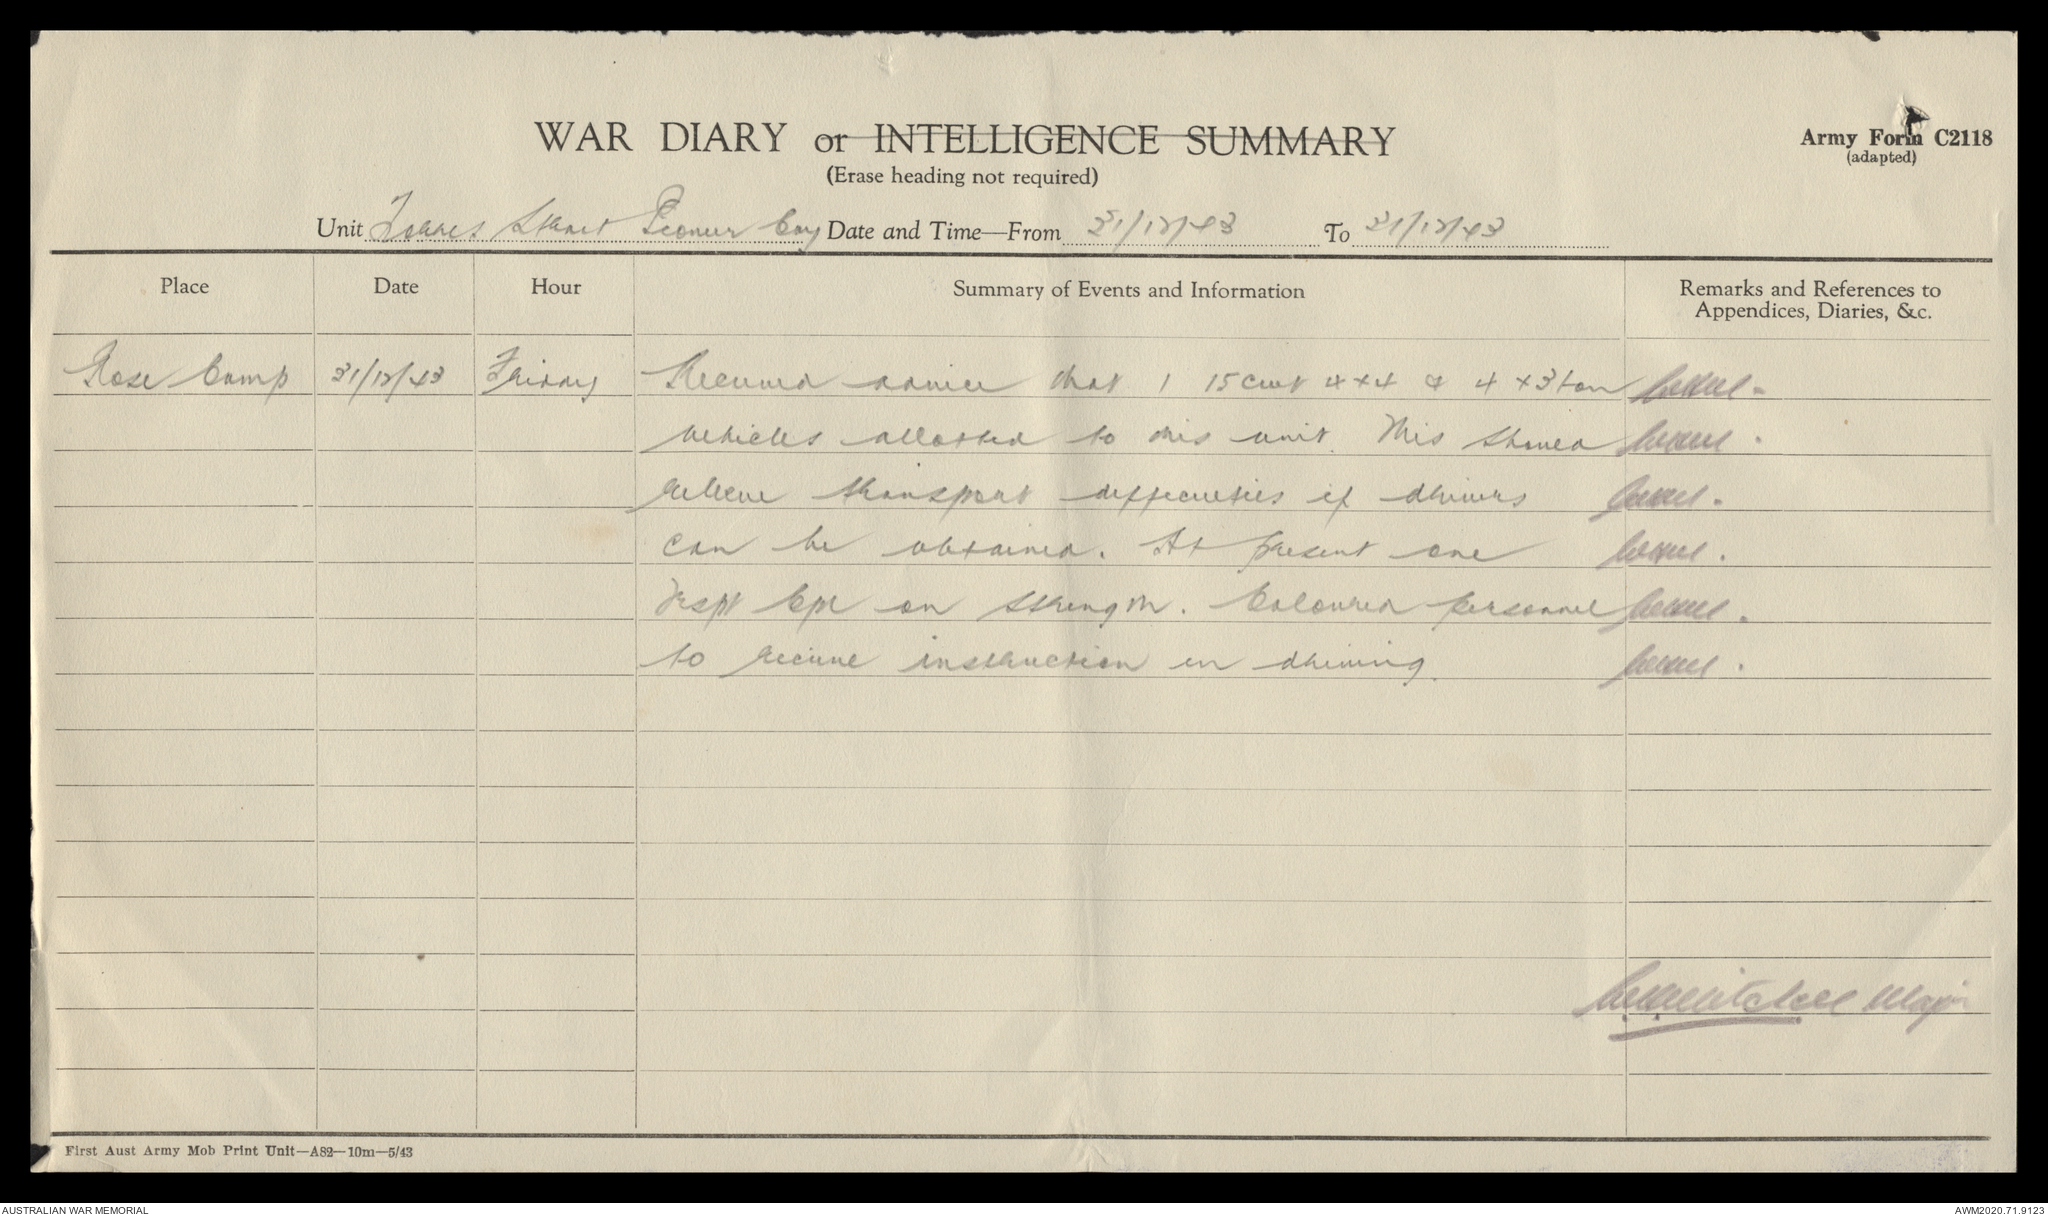 WAR DIARY or INTELLIGENCE SUMMARY
(Erase heading not required)
Army Form C2118
(adapted)
Unit Torres Strait Pioneer Coy Date and Time—From 31/12/43 To 31/12/43
Place Date Hour Summary of Events and Information Remarks and References to
Appendices, Diaries, &c.
Rose Camp 31/12/43 Friday Received advice that 1 15cwt 4x4 & 4 x 3 ton
vehicles allotted to this unit. This should
relieve transport difficulties if drivers
can be obtained. At present one
Tspt Cpl on strength. Coloured personnel
to receive instruction in driving.
Mitchell Major
First Aust Army Mob Print Unit—A82—10m—5/43
AUSTRALIAN WAR MEMORIAL
AWM2020.71.9123